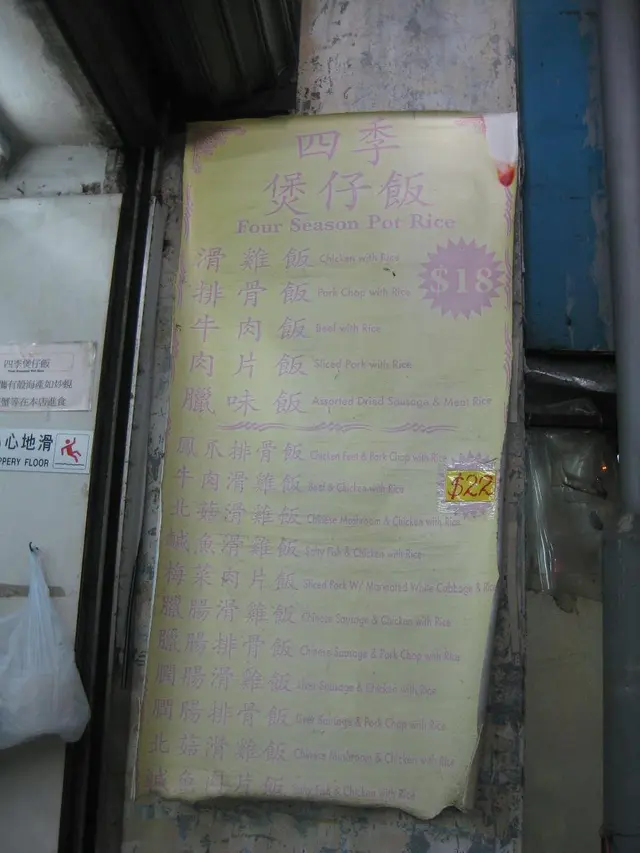 四季
煲仔飯
Four Season Pot Rice
滑雞飯 Chicken with Rice
$18
排骨飯 Pork Chop with Rice
牛肉飯 Beef with Rice
肉片飯 Sliced Pork with Rice
臘味飯 Assorted Dried Sausage & Meat Rice
鳳爪排骨飯 Chicken Feet & Pork Chop with Rice
牛肉滑雞飯 Beef & Chicken with Rice
$22
北菇滑雞飯 Chinese Mushroom & Chicken with Rice
鹹魚滑雞飯 Salty Fish & Chicken with Rice
梅菜肉片飯 Sliced Pork W/ Marinated White Cabbage & Rice
臘腸滑雞飯 Chinese Sausage & Chicken with Rice
臘腸排骨飯 Chinese Sausage & Pork Chop with Rice
膶腸滑雞飯 Liver Sausage & Chicken with Rice
膶腸排骨飯 Liver Sausage & Pork Chop with Rice
北菇滑雞飯 Chinese Mushroom & Chicken with Rice
鹹魚肉片飯 Salty Fish & Chicken with Rice
四季煲仔飯
備有龍海產如炒蜆
蟹等在本店進食
心地滑
PPERY FLOOR